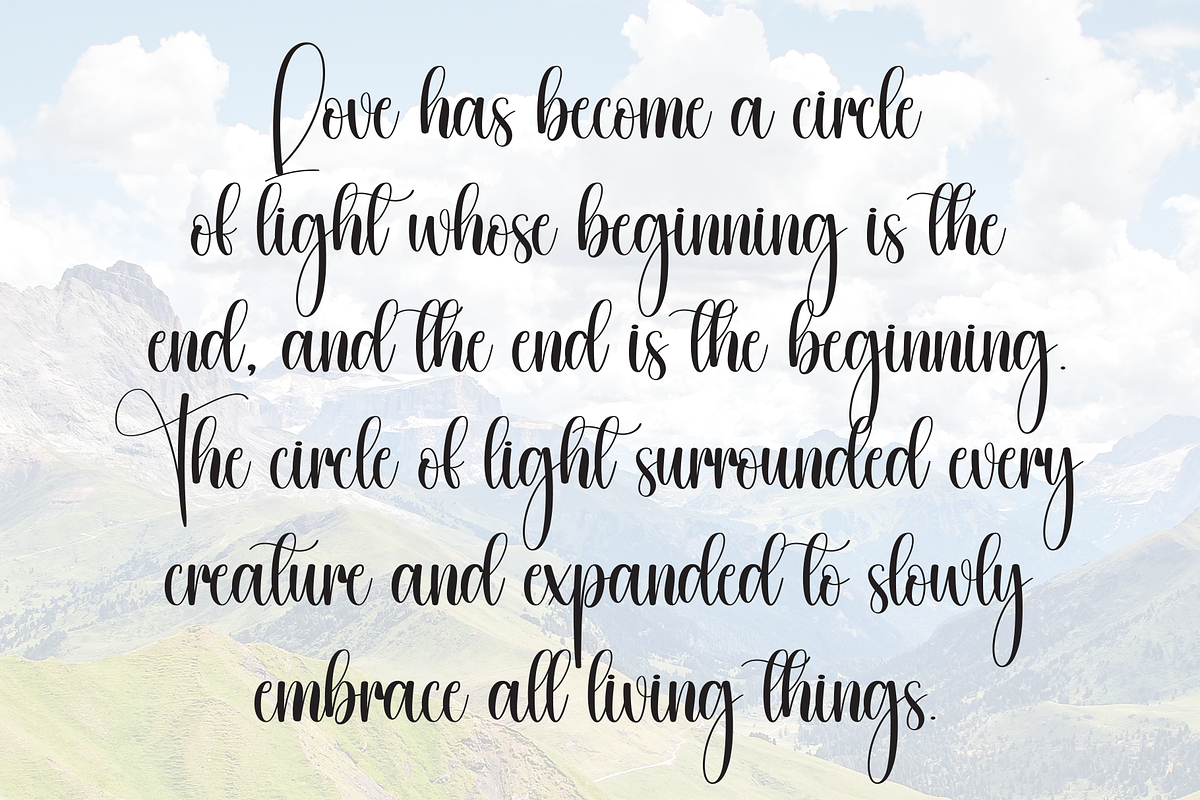 Love has become a circle
of light whose beginning is the
end, and the end is the beginning.
The circle of light surrounded every
creature and expanded to slowly
embrace all living things.